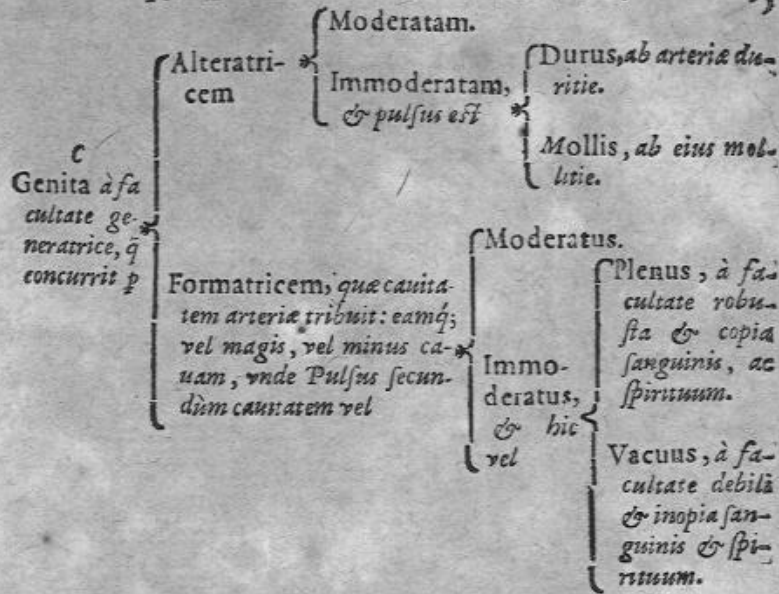 C
Genita à fa
cultate ge-
neratrice, q̃
concurrit ꝑ
Alteratri-
cem
Moderatam.
Immoderatam,
& pulſus eſt
Durus, ab arteriæ du-
ritie.
Mollis, ab eius mol-
litie.
Formatricem, quæ cauita-
tem arteriæ tribuit: eamq́;
vel magis, vel minus ca-
uam, vnde Pulſus ſecun-
dùm cauitatem vel
Moderatus.
Immo-
deratus,
& hic
vel
Plenus, à fa-
cultate robu-
ſta & copia
ſanguinis, ac
ſpirituum.
Vacuus, à fa-
cultate debili
& inopia ſan-
guinis & ſpi-
rituum.